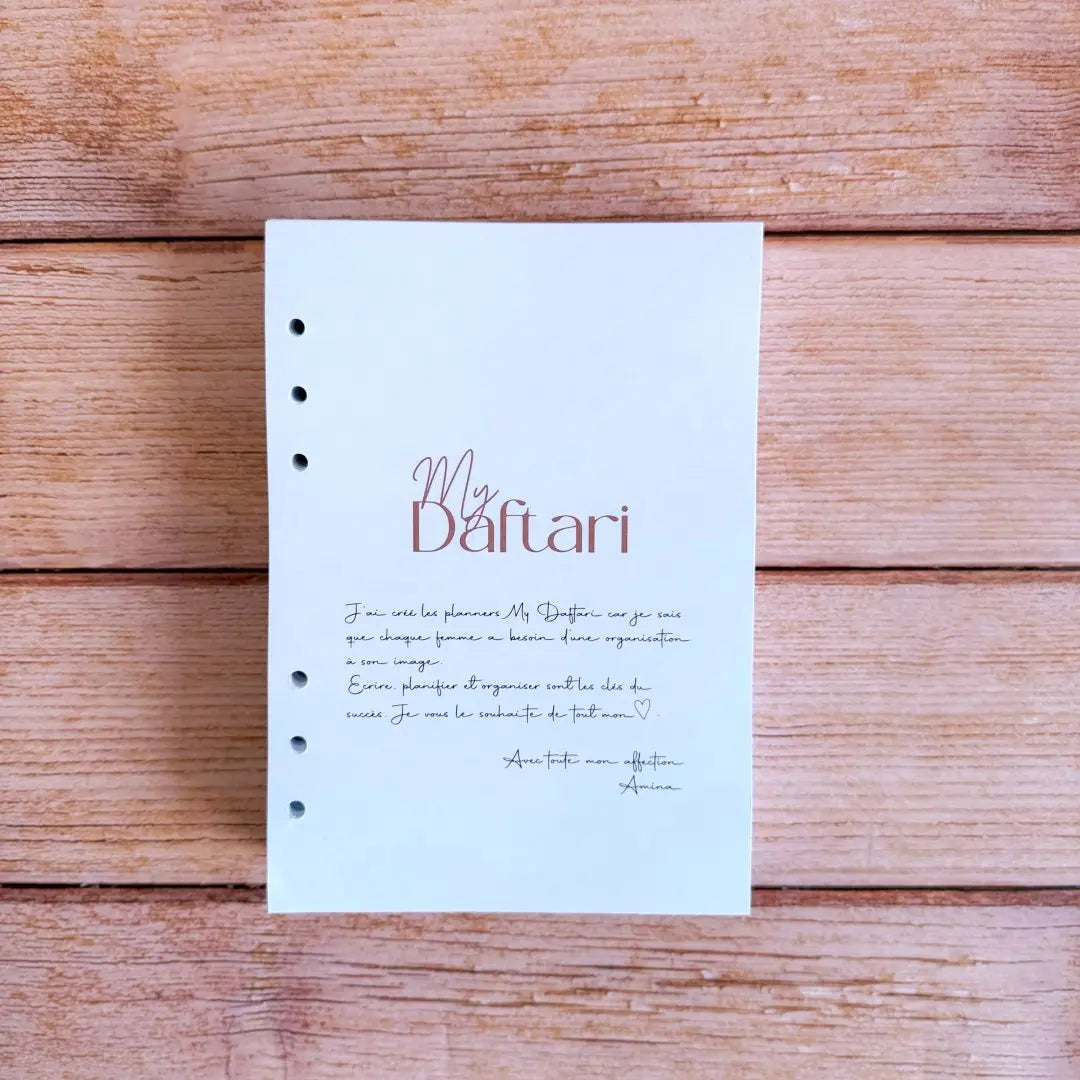 My
Daftari
J'ai créé les planners My Daftari car je sais
que chaque femme a besoin d'une organisation
à son image.
Ecrire, planifier et organiser sont les clés du
succès. Je vous le souhaite de tout mon ♡.
Avec toute mon affection
Amina